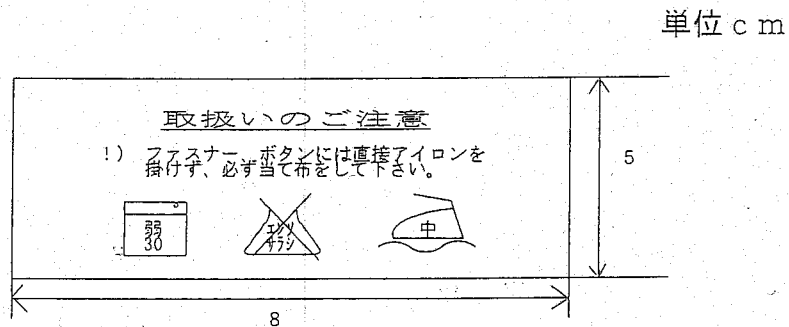 単位cm
取扱いのご注意
!) ファスナー、ボタンには直接アイロンを
掛けず、必ず当て布をして下さい。
弱
30
エンソ
サラシ
中
5
8